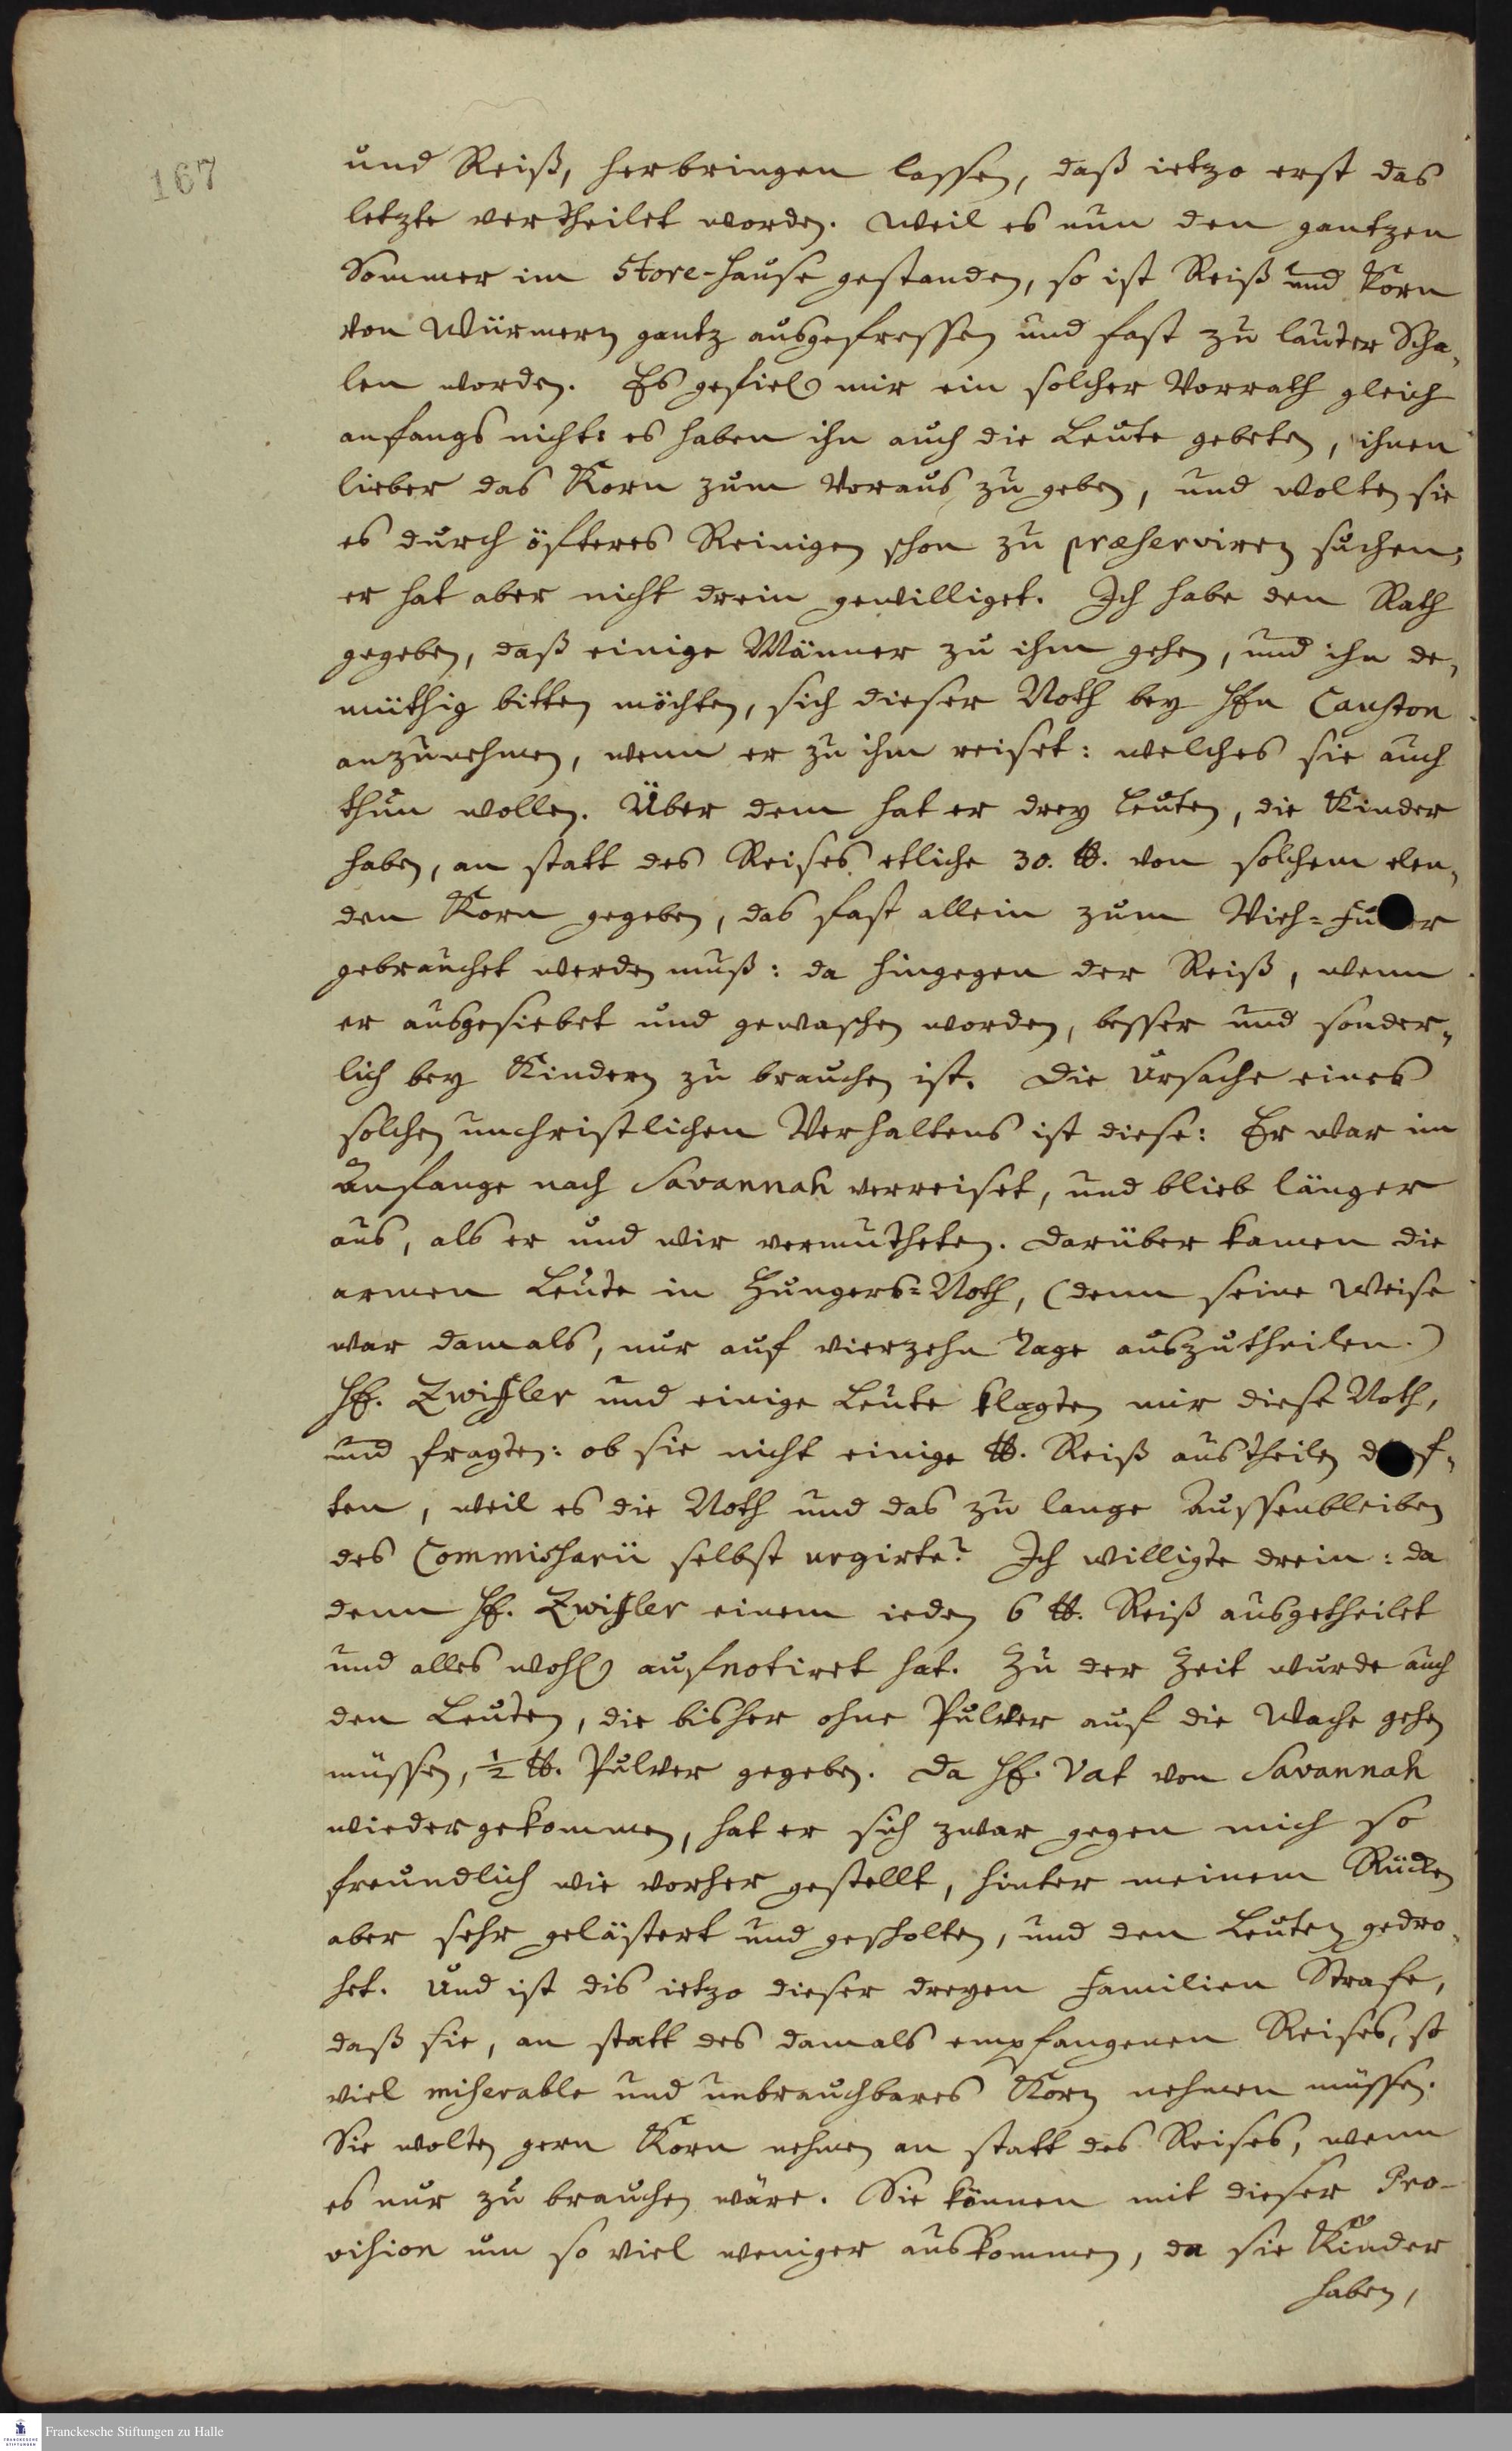 167
und Reiß, herbringen lassen, daß ietzo erst das
letzte vertheilet worden. Weil es nun den gantzen
Sommer im Store-Hause gestanden, so ist Reiß und Korn
von Würmern gantz ausgefressen und fast zu lauter Scha,
len worden. Es gefiel mir ein solcher Vorrath gleich
anfangs nicht: es haben ihn auch die Leute gebeten, ihnen
lieber das Korn zum Voraus zu geben, und wolten sie
es durch öfteres Reinigen schon zu præserviren suchen;
er hat aber nicht drein gewilliget. Ich habe den Rath
gegeben, daß einige Männer zu ihm gehen, und ihn de,
müthig bitten möchten, sich dieser Noth bey Hℓn Causton
anzunehmen, wenn er zu ihm reiset: welches sie auch
thun wollen. Über dem hat er drey Leuten, die Kinder
haben, an statt des Reises etliche 30. ℔. von solchem elen,
den Korn gegeben, das fast allein zum Vieh=Fu er
gebrauchet werden muß: da hingegen der Reiß, wenn
er ausgesiebet und gewaschen worden, besser und sonder,
lich bey Kindern zu brauchen ist. Die Ursache eines
solchen unchristlichen Verhaltens ist diese: Er war im
Anfange nach Savannah verreiset, und blieb länger
aus, als er und wir vermutheten. Darüber kamen die
armen Leute in Hungers=Noth, (denn seine Weise
war damals, nur auf vierzehn Tage auszutheilen.)
Hℓ. Zwifler und einige Leute klagten mir diese Noth,
und fragten: ob sie nicht einige ℔. Reiß austheilen d f,
ten, weil es die Noth und das zu lange Aussenbleiben
des Commissarii selbst urgirte? Ich willigte drein: da
denn Hℓ. Zwifler einem ieden 6 ℔. Reiß ausgetheilet
und alles wohl aufnotiret hat. Zu der Zeit wurde auch
den Leuten, die bisher ohne Pulver auf die Wache gehen
müssen, ½ ℔. Pulver gegeben. Da Hℓ. Vat von Savannah
wiedergekommen, hat er sich zwar gegen mich so
freundlich wie vorher gestellt, hinter meinem Rücken
aber sehr gelästert und gescholten, und den Leuten gedro,
het. Und ist dis ietzo dieser dreyen Familien Strafe,
daß sie, an statt des damals empfangenen Reises, so
viel miserable und unbrauchbares Korn nehmen müssen.
Sie wolten gern Korn nehmen an statt des Reises, wenn
es nur zu brauchen wäre. Sie können mit dieser Pro-
vision um so viel weniger auskommen, da sie Kinder
haben,
Franckesche Stiftungen zu Halle